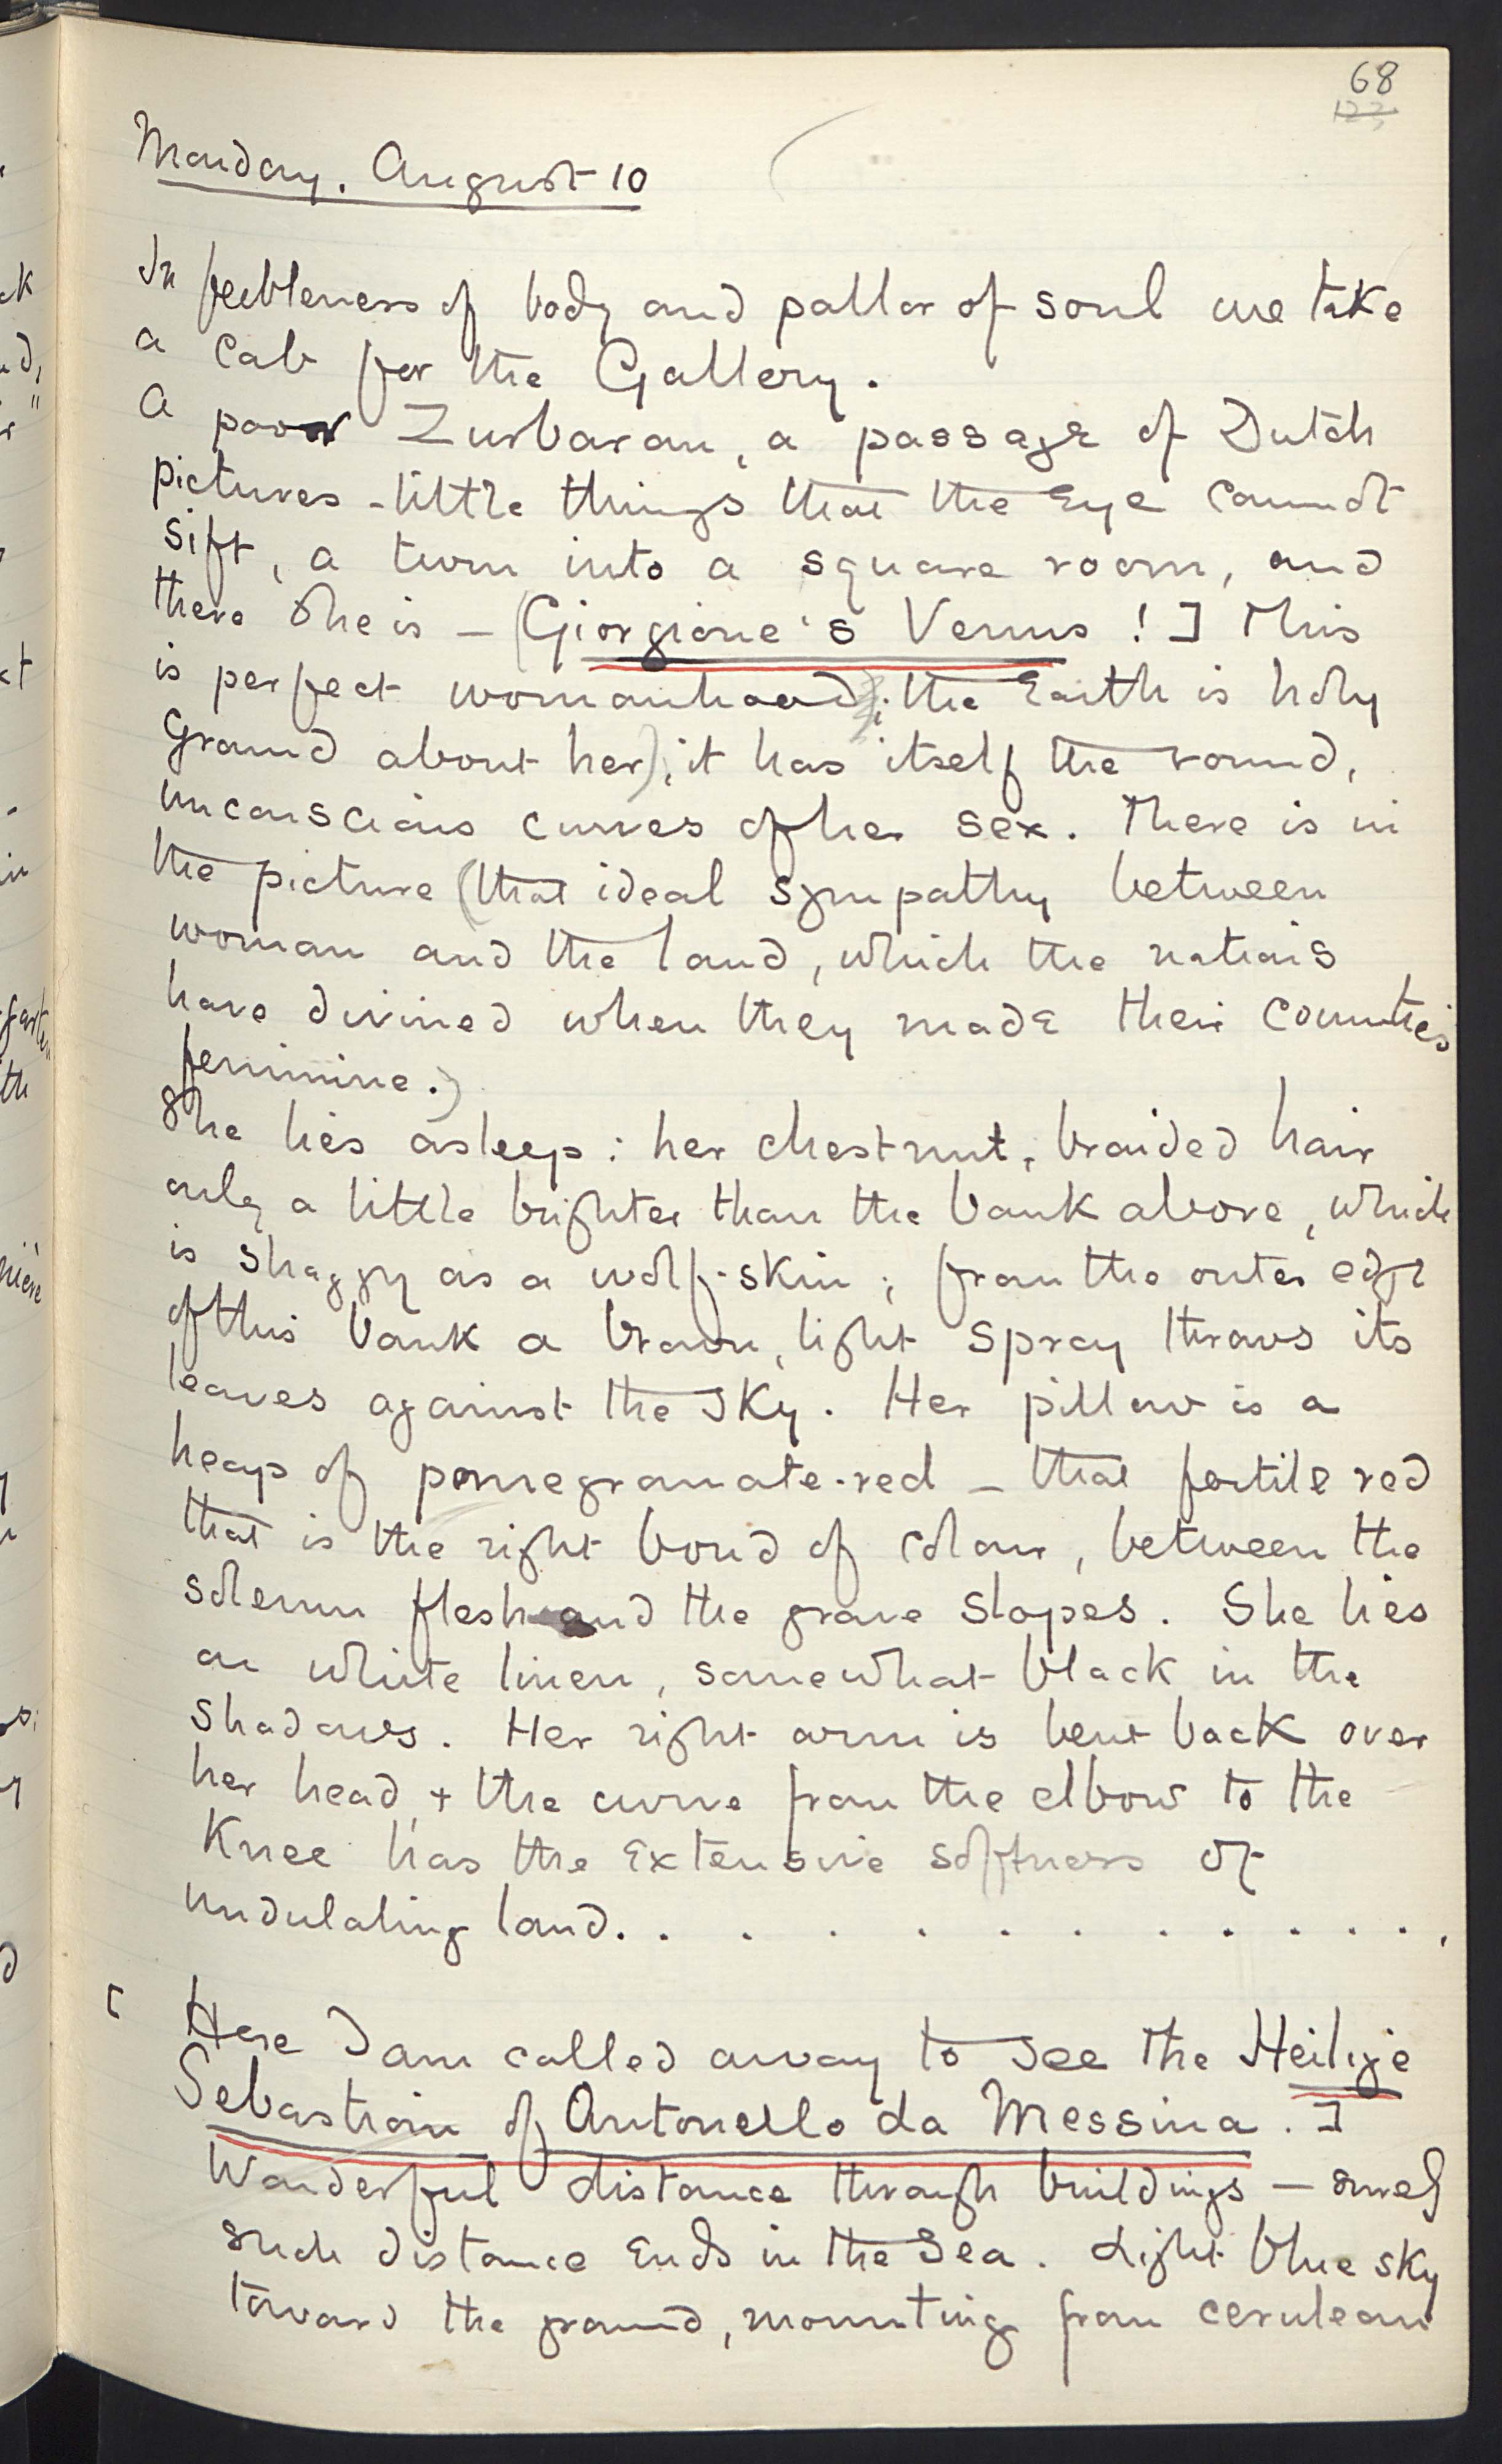 68
123
Monday. August 10
In feebleness of body and pallor of soul we take
a cab for the Gallery.
A poor Zurbaran, a passage of Dutch
pictures - little things that the Eye cannot
sift, a turn into a square room, and
there she is - (Giorgione's Venus ! ] This
is perfect womanhood; the Earth is holy
ground about her); it has itself the round,
unconscious curves of her sex. There is in
the picture (that ideal sympathy between
woman and the land, which the nations
have divined when they made their countries
feminine.)
She lies asleep : her chestnut, braided hair
only a little brighter than the bank above, which
is shaggy as a wolf-skin ; from the outer edge
of this bank a brown, light spray throws its
leaves against the sky. Her pillow is a
heap of pomegranate-red - that fertile red
that is the right bond of colour, between the
solemn flesh and the grave slopes. She lies
on white linen, somewhat black in the
shadows. Her right arm is bent back over
her head, + the curve from the elbow to the
Knee has the Extensive softness of
undulating land. . . . . . . . . . . . .
[ Here I am called away to see the Heilige
Sebastian of Antonello da Messina. ]
Wonderful distance through buildings - surely
such distance Ends in the Sea. Light blue sky
toward the ground, mounting from cerulean